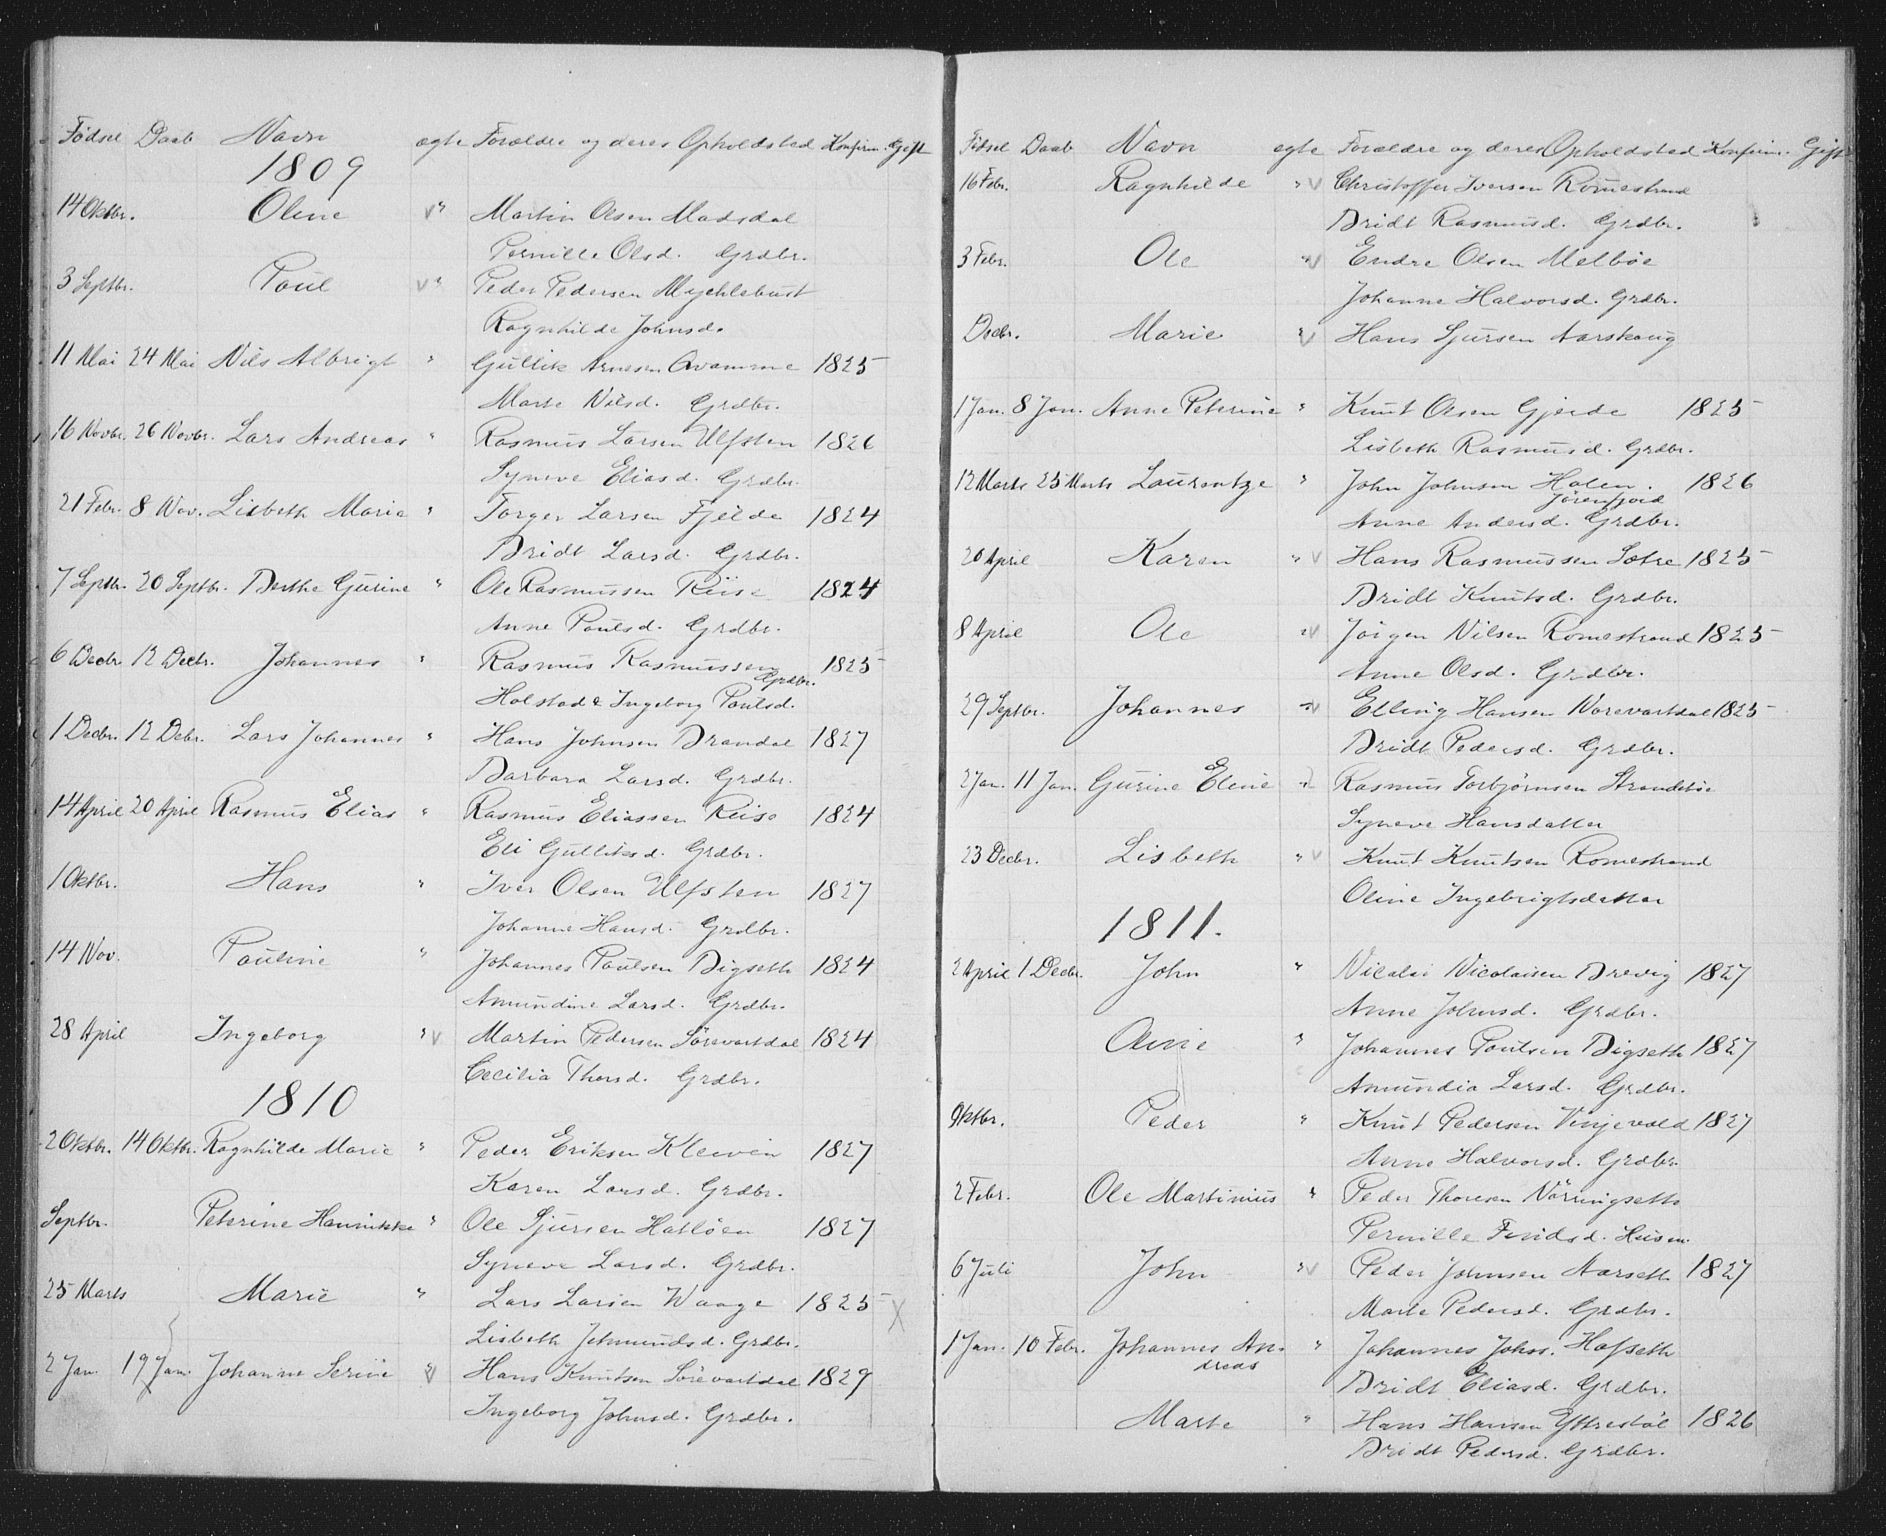 Fødsel Daab Navn ægte Forældre og deres Opholdsted Konfirm. Gift
1809
14 Oktbr. Oline " Martin Olsen Madsdal
Pernille Olsd. Grdbr.
3 Septbr. Poul " Peder Pedersen Mychlebust
Ragnhilde Johnsd.
11 Mai 24 Mai Nils Albrigt " Gullik Arnesen Qvamme 1825
Marte Nilsd. Grdbr.
16 Novbr. 26 Novbr. Lars Andreas " Rasmus Larsen Ulfsten 1826
Syneve Eliasd. Grdbr.
21 Febr. 8 Nov. Lisbeth Marie " Torger Larsen Fjelde 1824
Bridt Larsd. Grdbr.
7 Septbr. 20 Septbr. Berthe Gurine " Ole Rasmussen Riise 1824
Anne Poulsd. Grdbr.
6 Decbr. 12 Decbr. Johannes " Rasmus Rasmussen 1825
Grdbr.
Holstad & Ingeborg Poulsd.
1 Decbr. 12 Debr. Lars Johannes " Hans Johnsen Brandal 1827
Barbara Larsd. Grdbr.
14 April 20 April Rasmus Elias " Rasmus Eliassen Riise 1824
Eli Gulliksd. Grdbr.
1 Oktbr. Hans " Iver Olsen Ulfsten 1827
Johanne Hansd. Grdbr.
14 Nov. Pauline " Johannes Poulsen Digseth 1824
Amundine Larsd. Grdbr.
28 April Ingeborg " Martin Pedersen Sörevartdal 1824
Cecilia Thorsd. Grdbr.
1810
2 Oktbr. 14 Oktbr. Ragnhilde Marie " Peder Eriksen Kleven 1827
Karen Larsd. Grdbr.
Septbr. Peterine Hannikke " Ole Sjursen Hatlöen 1827
Syneve Larsd. Grdbr.
25 Marts Marie " Lars Larsen Waage 1825 X
Lisbeth Jetmundsd. Grdbr.
2 Jan. 19 Jan. Johanne Serine " Hans Knutsen Sörevartdal 1829
Ingeborg Johnsd. Grdbr.
Födsel Daab Navn ægte Forældre og deres Opholdsted Konfirm. Gift
16 Febr. Ragnhilde " Christoffer Iversen Romestrand
Bridt Rasmusd. Grdbr.
3 Febr. Ole " Endre Olsen Melböe
Johanne Halvorsd. Grdbr.
Decbr. Marie " Hans Sjursen Aarskoug
1 Jan. 8 Jan. Anne Peterine " Knut Olsen Gjerde 1825
Lisbeth Rasmusd. Grdbr.
12 Marts 25 Marts Laurentze " John Johnsen Holen. 1826
Jörenfjord
Anne Andersd. Grdbr.
20 April Karen " Hans Rasmussen Sætre 1825
Bridt Knutsd. Grdbr.
8 April Ole " Jörgen Nilsen Romestrand 1825
Anne Olsd. Grdbr.
29 Septbr. Johannes " Elling Hansen Norevartdal 1825
Bridt Pedersd. Grdbr.
2 Jan. 11 Jan. Gurine Eline " Rasmus Torbjörnsen Strandeböe
Syneve Hansdatter
23 Decbr. Lisbeth " Knut Knutsen Romestrand
Oline Ingebrigtsdatter
1811.
2 April 1 Decbr. John " Nicolai Nicolaisen Brevig 1827
Anne Johnsd. Grdbr.
Oline " Johannes Poulsen Digseth 1827
Amundia Larsd. Grdbr.
Oktbr. Peder " Knut Pedersen Vinjevold 1827
Anne Halvorsd. Grdbr.
2 Febr. Ole Martinius " Peder Thoresen Nörringseth
Pernille Findsd. Husm.
6 Juli John " Peder Johnsen Aarseth 1827
Marte Pedersd. Grdbr.
1 Jan. 10 Febr. Johannes An- " Johannes Johs. Hofseth
dreas
Bridt Eliasd. Grdbr.
Marte " Hans Hansen Yttrestöl 1826
Bridt Pedersd. Grdbr.